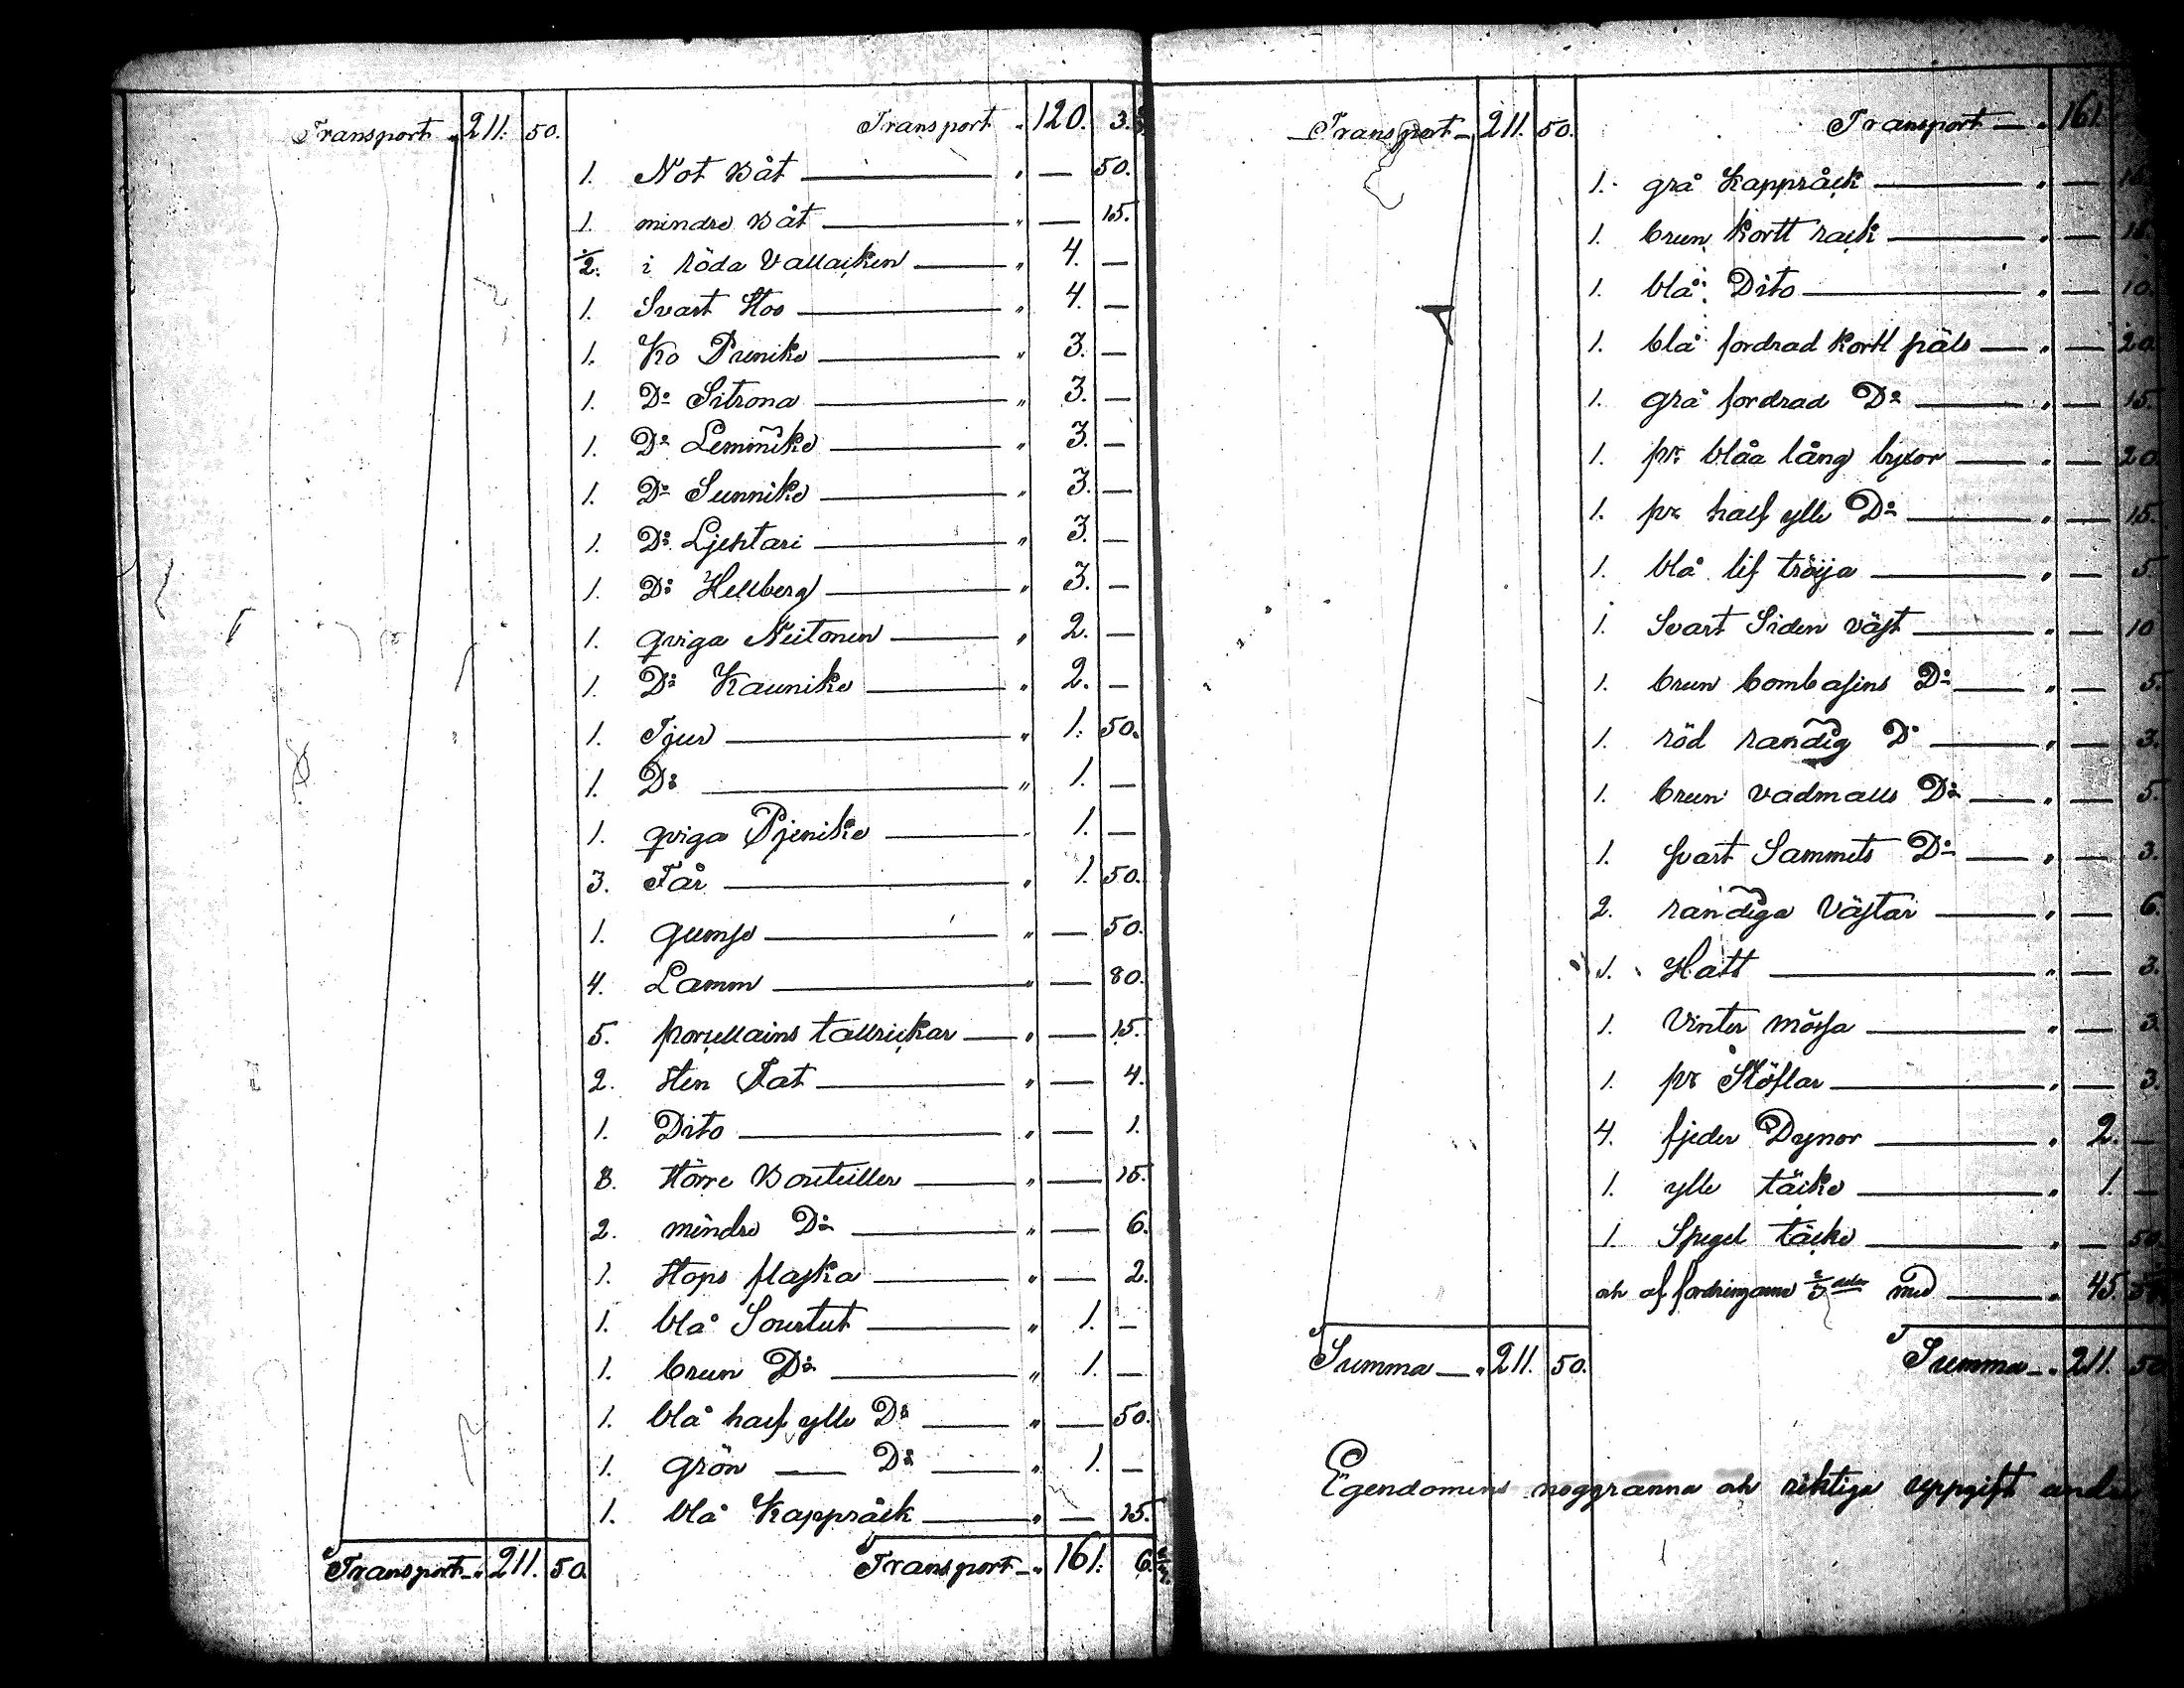 Transport " 211. 50. Transport " 120. 3.
1. Not Båt — " — 50.
1. mindre Båt — " — 15.
1/2. i röda Vallacken — " 4. —
1. Svart Sto — " 4. —
1. Ko Prunike — " 3. —
1. D:o Sitrona — " 3. —
1. D:o Lemmike — " 3. —
1. D:o Sunnike — " 3. —
1. D:o Ljehtari — " 3. —
1. D:o Hellberg — " 3. —
1. qviga Neitonen — " 2. —
1. D:o Kaunike — " 2. —
1. Tjur — " 1. 50.
1. D:o — " 1. —
1. qviga Pjenike — " 1. —
3. Får — " 1. 50.
1. gumse — " — 50.
4. Lamm — " — 80.
5. porcellains tallrickar — " — 15.
2. sten Fat — " — 4.
1. Dito — " — 1.
3. större Bouteiller — " — 15.
2. mindre D:o — " — 6.
1. stops flaska — " — 2.
1. blå Sourtut — " 1. —
1. brun D:o — " 1. —
1. blå half ylle D:o — " — 50.
1. grön — D:o — " 1. —
1. blå Kappråck — " — 25.
Transport " 211. 50. Transport " 161. 6.
Transport " 211. 50. Transport — " 161.
1. grå Kappråck — " —
1. brun kortt rack — " —
1. blå Dito — " — 10.
1. blå fordrad kortt päls — " — 20.
1. grå fordrad D:o — " — 15.
1. pr. blåa lång byxor — " — 20.
1. pr half ylle D:o — " — 15.
1. blå lif tröija — " — 5.
1. Svart Siden väst — " — 10
1. brun bombasins D:o — " — 5.
1. röd randig D:o — " — 3.
1. brun vadmalls D:o — " — 5.
1. svart Sammets D:o — " — 3.
2. randiga Västar — " — 6.
1. Hatt — " — 3.
1. Vinter mössa — " — 3.
1. pr Stöflar — " — 3.
4. fjeder Dynor — " 2. —
1. ylle täcke — " 1. —
1. Spegel täcke — " — 50.
och af fordringarne med — " 45.
Summa — " 211. 50. Summa — " 211. 50
Egendomens noggranna och riktiga uppgift